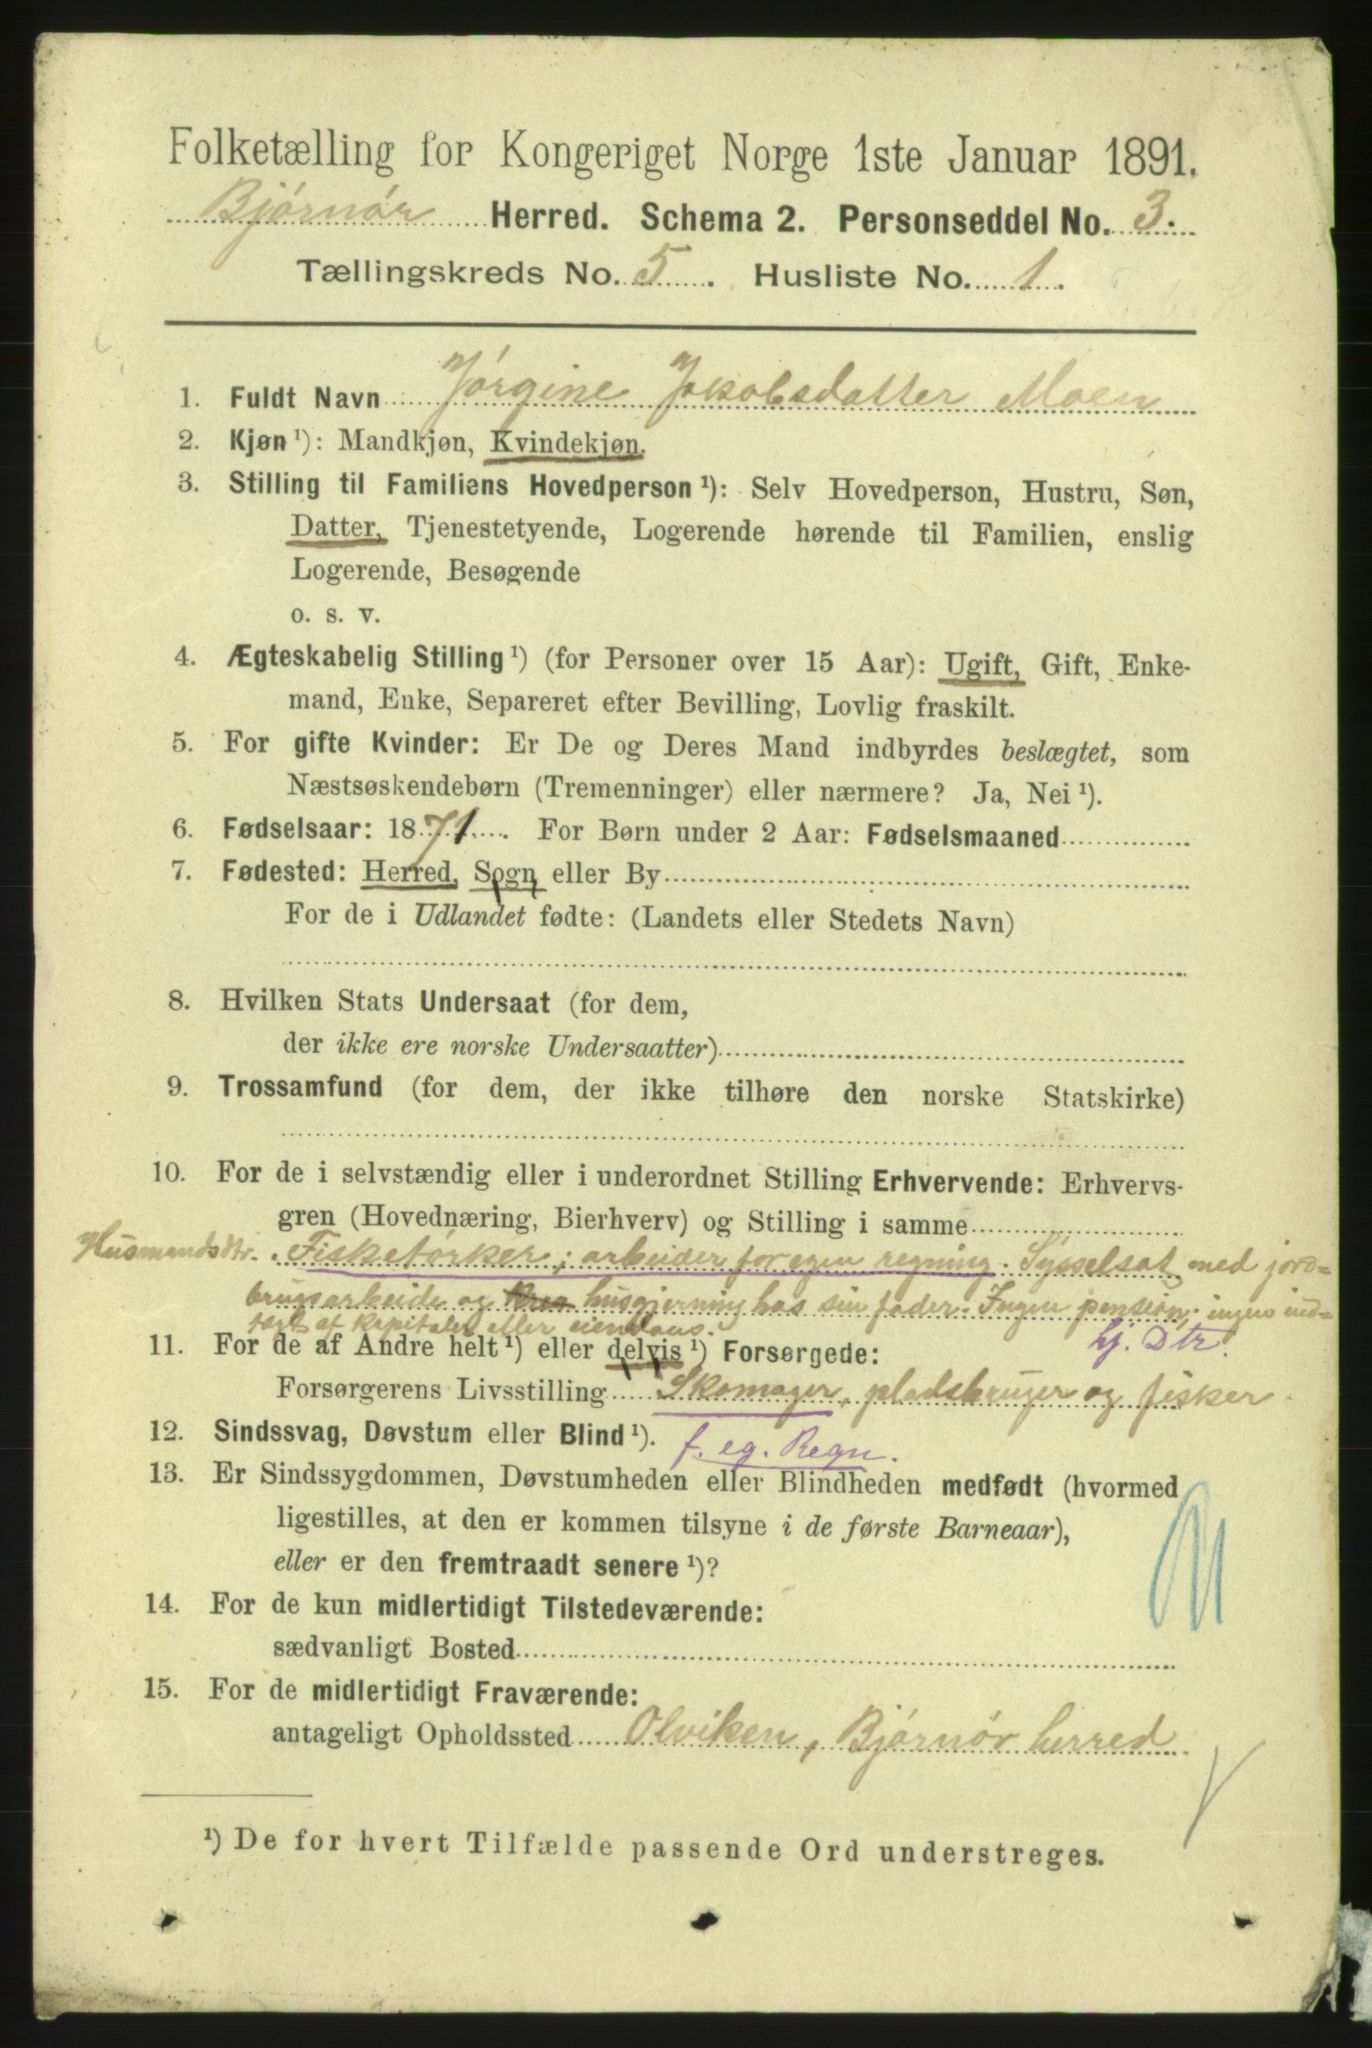 Folketælling for Kongeriget Norge 1ste Januar 1891.
Bjørnør Herred. Schema 2. Personseddel No. 3.
Tællingskreds No. 5. Husliste No. 1.
1. Fuldt Navn Jørgine Jakobsdatter Moen
2. Kjøn ¹): Mandkjøn, Kvindekjøn.
3. Stilling til Familiens Hovedperson ¹): Selv Hovedperson, Hustru, Søn,
Datter, Tjenestetyende, Logerende hørende til Familien, enslig
Logerende, Besøgende
o. s. v.
4. Ægteskabelig Stilling ¹) (for Personer over 15 Aar): Ugift, Gift, Enke-
mand, Enke, Separeret efter Bevilling, Lovlig fraskilt.
5. For gifte Kvinder: Er De og Deres Mand indbyrdes beslægtet, som
Næstsøskendebørn (Tremenninger) eller nærmere? Ja, Nei ¹).
6. Fødselsaar: 1871. For Børn under 2 Aar: Fødselsmaaned
7. Fødested: Herred, Sogn eller By
For de i Udlandet fødte: (Landets eller Stedets Navn)
8. Hvilken Stats Undersaat (for dem,
der ikke ere norske Undersaatter)
9. Trossamfund (for dem, der ikke tilhøre den norske Statskirke)
10. For de i selvstændig eller i underordnet Stilling Erhvervende: Erhvervs-
gren (Hovednæring, Bierhverv) og Stilling i samme
Husmandsdtr. Fisketørker; arbeider for egen regning. Sysselsat med jord-
brugsarbeide og husgjerning hos sin fader. Ingen pension, ingen ind-
tægt af kapitaler eller eiendom.
hj. Dtr.
11. For de af Andre helt ¹) eller delvis ¹) Forsørgede:
Forsørgerens Livsstilling Skomager, pladsbruger og fisker
f. eg. Regn.
12. Sindssvag, Døvstum eller Blind ¹).
13. Er Sindssygdommen, Døvstumheden eller Blindheden medfødt (hvormed
ligestilles, at den er kommen tilsyne i de første Barneaar),
eller er den fremtraadt senere ¹)?
14. For de kun midlertidigt Tilstedeværende:
sædvanligt Bosted
15. For de midlertidigt Fraværende:
antageligt Opholdssted Olviken, Bjørnør herred
¹) De for hvert Tilfælde passende Ord understreges.